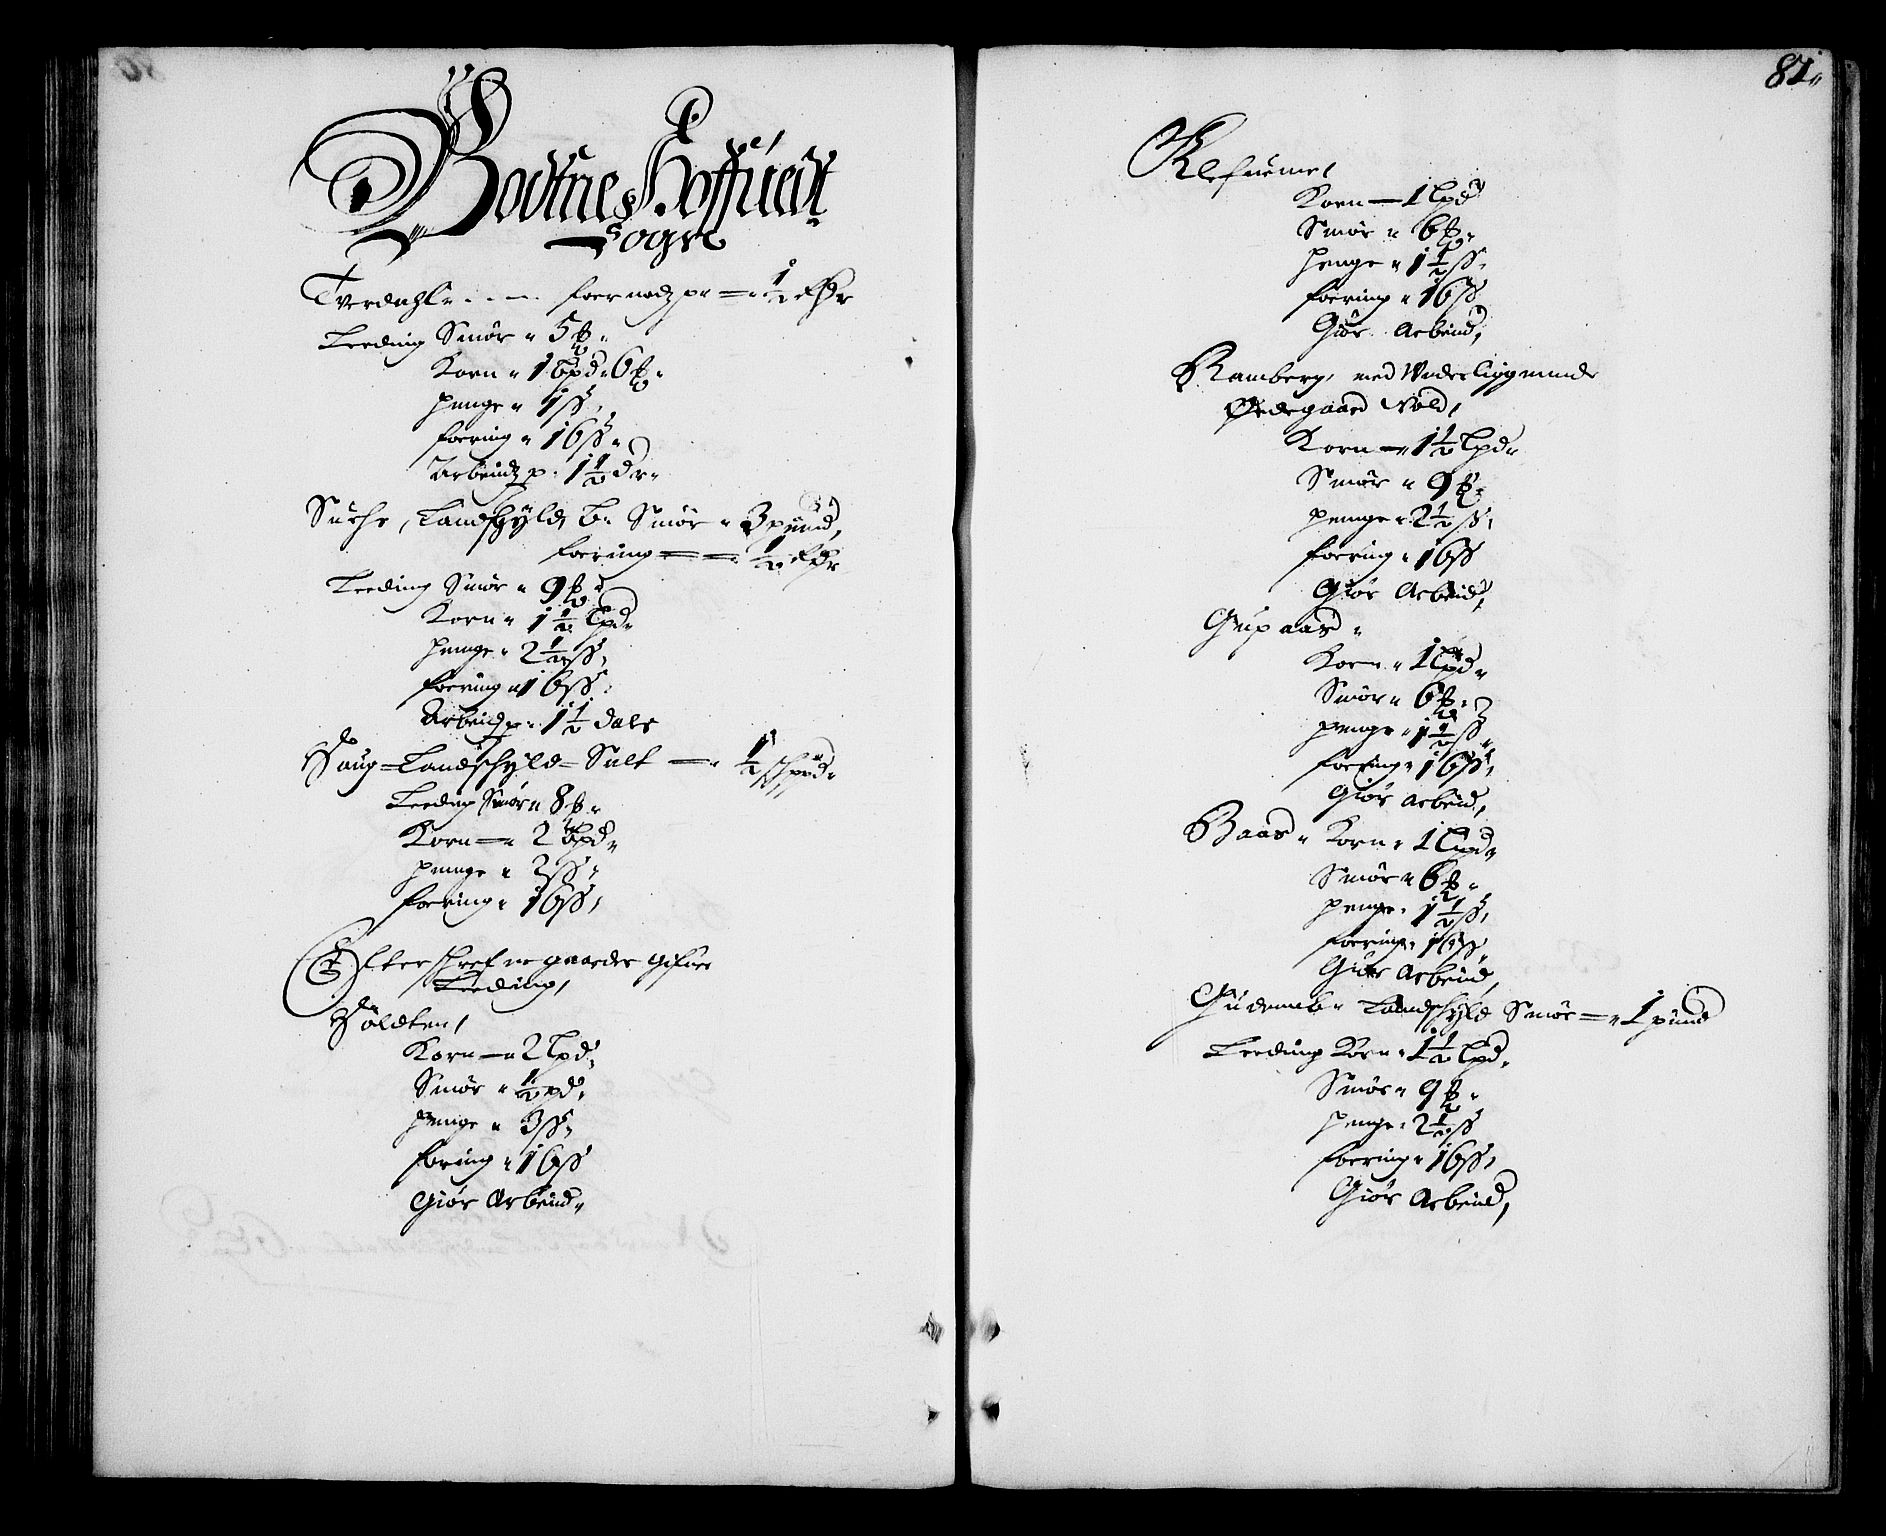 Bodtnes Hoffuedt
Sogn
Tverdahl foernodz p
Leeding Smør 5 ℔
Korn 1 Lpd 6 ℔
penge 1 ß
foering 16 ß
Arbeidz p: 1½ dr
Landschyld Smør 3 pund,
foering ½
Leeding Smør 9 ℔
Korn 1½ Lpd
penge 2½ ß
foering 16 ß
Arbeidz p 1½ daler
Houg Landschyld Salt ½ schpd
Leeding Smør 8 ℔
Korn 2 Lpd
penge 2 ß
foering 16 ß
Efterschrefne gaarder gifuer
Leeding,
Holdten,
Korn 2 Lpd
Smør ½ pd,
penge 3 ß
foring 16 ß
Giør Arbeid
81
Klefuene,
Korn 1 Lpd
Smør 6 ℔
penge 1½ ß
foering 16 ß
Giør Arbeid,
Ramberg, med Underliggende
Ødegaard Vold,
Korn 1½ Lpd
Smør 9 ℔
penge 2½ ß
foering 16 ß
Giør Arbeid,
Gupaas
Korn 1 Lpd
Smør 6 ℔
penge 1½ ß
foering 16 ß,
Giør Arbeid,
Baas Korn 1 Lpd
Smør 6 ℔
penge 1½ ß,
foering 16 ß,
Giør Arbeid,
Landschyld Smør 1 pund
Leeding Korn 1½ Lpd
Smør 9 ℔
penge 2½ ß
foering 16 ß,
Giør Arbeid,